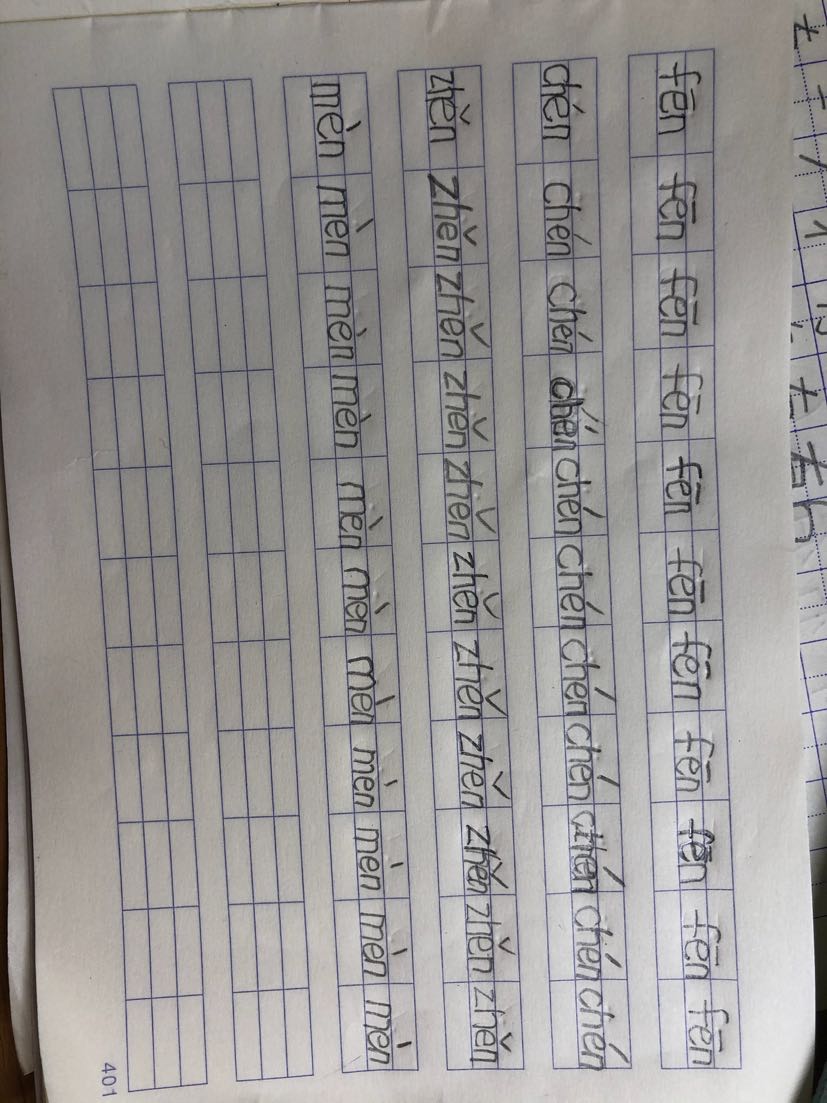 fēn fēn fēn fēn fēn fēn fēn fēn fēn fēn fēn
chén chén chén chén chén chén chén chén chén chén chén
zhěn zhěn zhěn zhěn zhěn zhěn zhěn zhěn zhěn zhěn zhěn
mèn mèn mèn mèn mèn mèn mèn mèn mèn mèn mèn
401